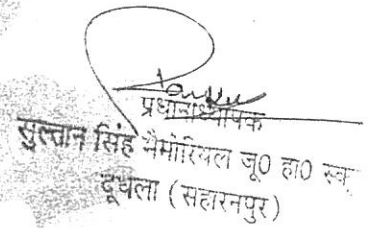 प्रधानाध्यापक
सुल्तान सिंह मैमोरियल जू0 हा0 स्कू
दूधला (सहारनपुर)